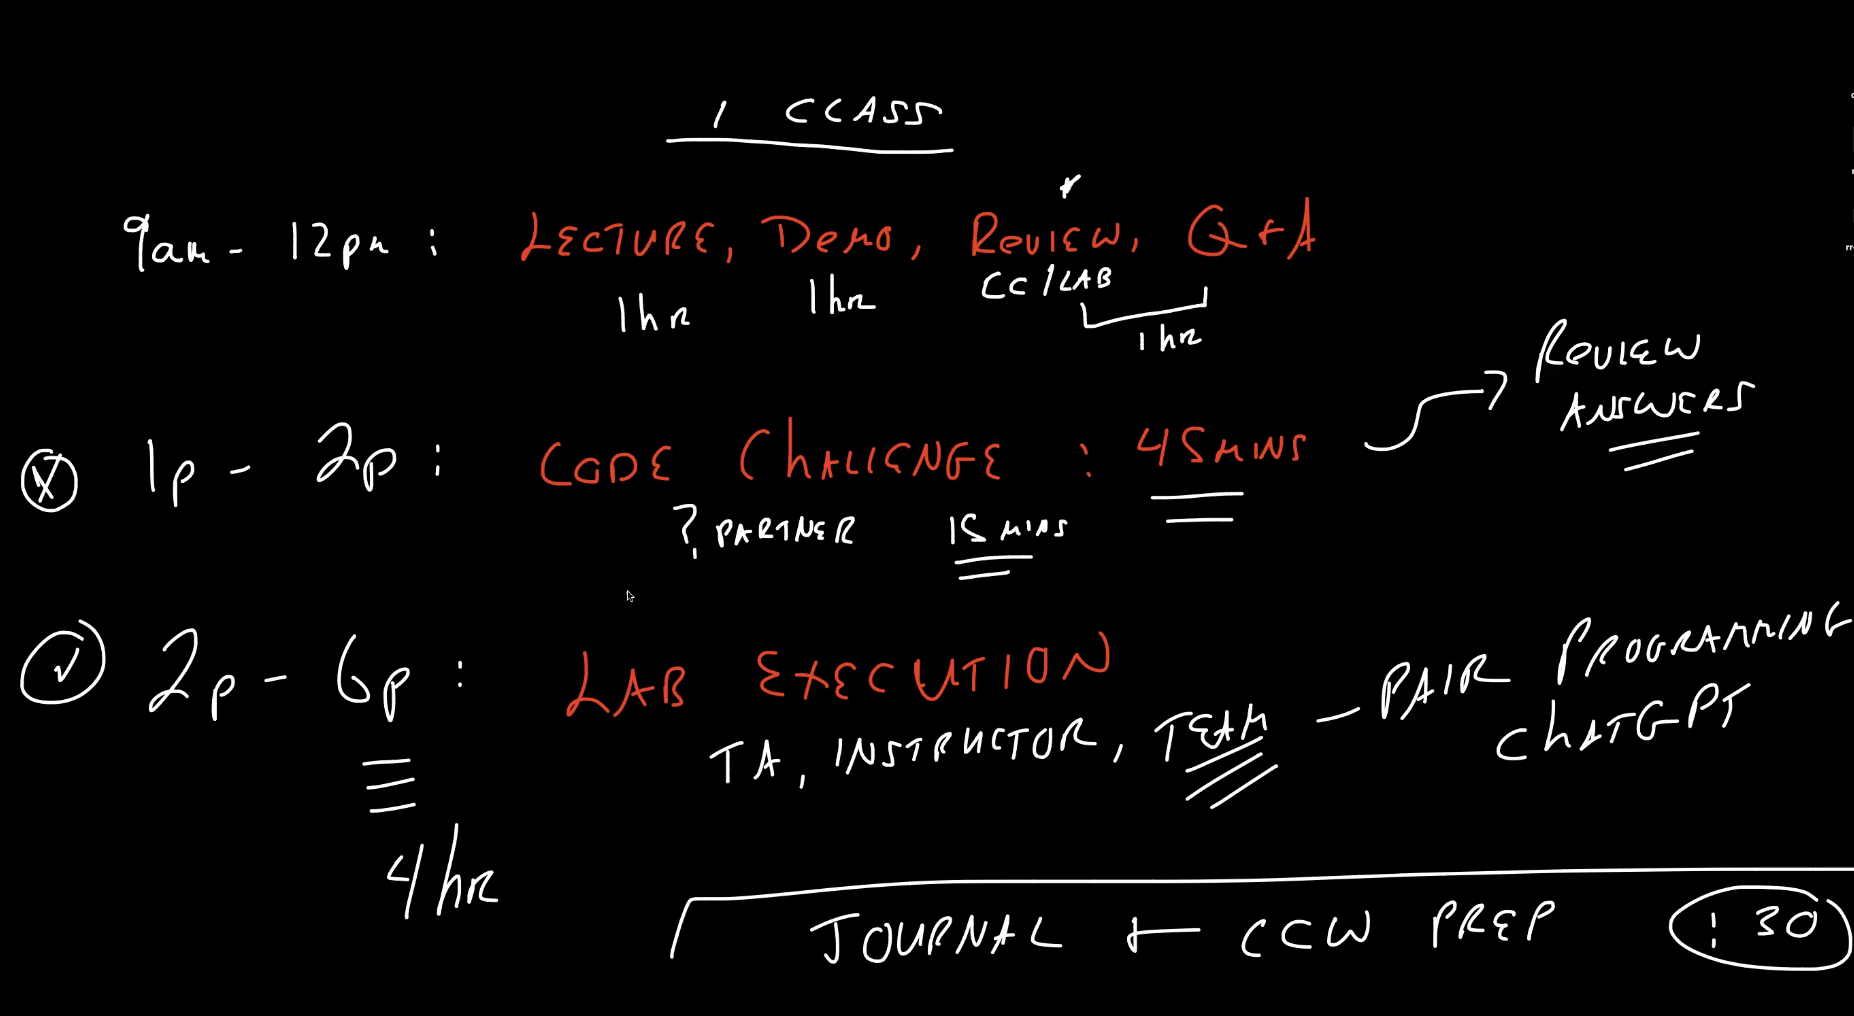 1 CLASS
9am - 12pm : LECTURE, DEMO, REVIEW, Q+A
1hr 1hr CC/LAB
1hr
REVIEW
ANSWERS
1p - 2p : CODE CHALLENGE : 45MINS
? PARTNER 15 MINS
2p - 6p : LAB EXECUTION
TA, INSTRUCTOR, TEAM - PAIR PROGRAMMING
CHATGPT
4hr
JOURNAL + CCW PREP :30